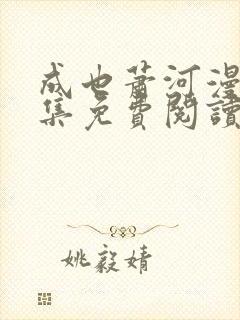 成也萧河漫
集免費閱讀
姚毅婧